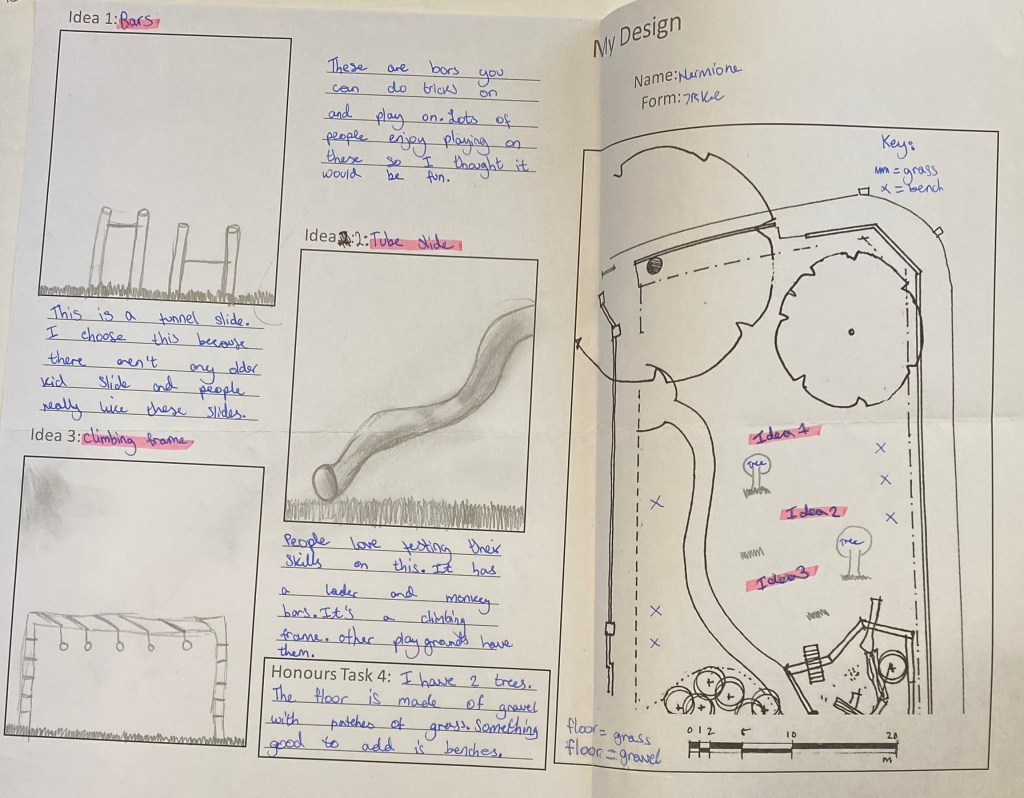 Idea 1: Bars
These are bars you
can do tricks on
and play on. Lots of
people enjoy playing on
these so I thought it
would be fun.
Idea 2: Tube slide
This is a tunnel slide.
I choose this because
there aren't any older
kid slide and people
really like these slides.
Idea 3: climbing frame
People love testing their
skills on this. It has
a lader and monkey
bars. It's a climbing
frame. other playgrounds have
them.
Honours Task 4: I have 2 trees.
The floor is made of gravel
with patches of grass. Something
good to add is benches.
My Design
Name: Hermione
Form:
Key:
= grass
x = bench
Idea 1
Tree
Idea 2
Tree
Idea 3
floor = grass
floor = gravel
0 1 2 5 10 20
m